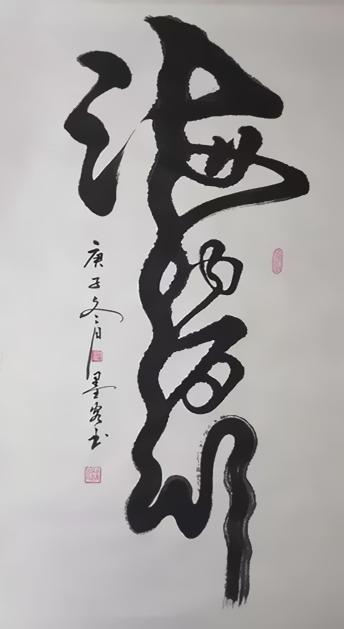 海纳百川
庚子冬月墨客书